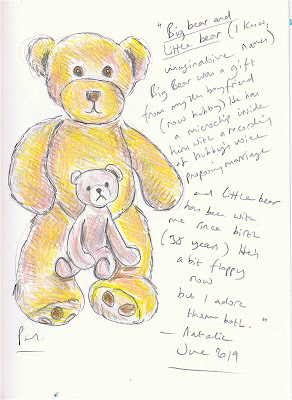 "Big bear and
Little bear (I know,
imaginative names)
Big Bear was a gift
from my then boyfriend
(now hubby) He has
a microchip inside
him with a recording
of hubby's voice
proposing marriage
and Little bear
has been with
me since birth
(38 years) He's
a bit floppy
now
but I adore
them both."
— Natalie
June 2019